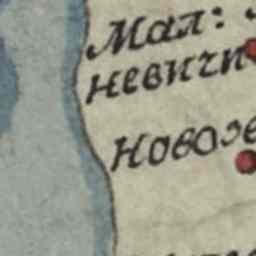 Мал:
невичи
Новосе